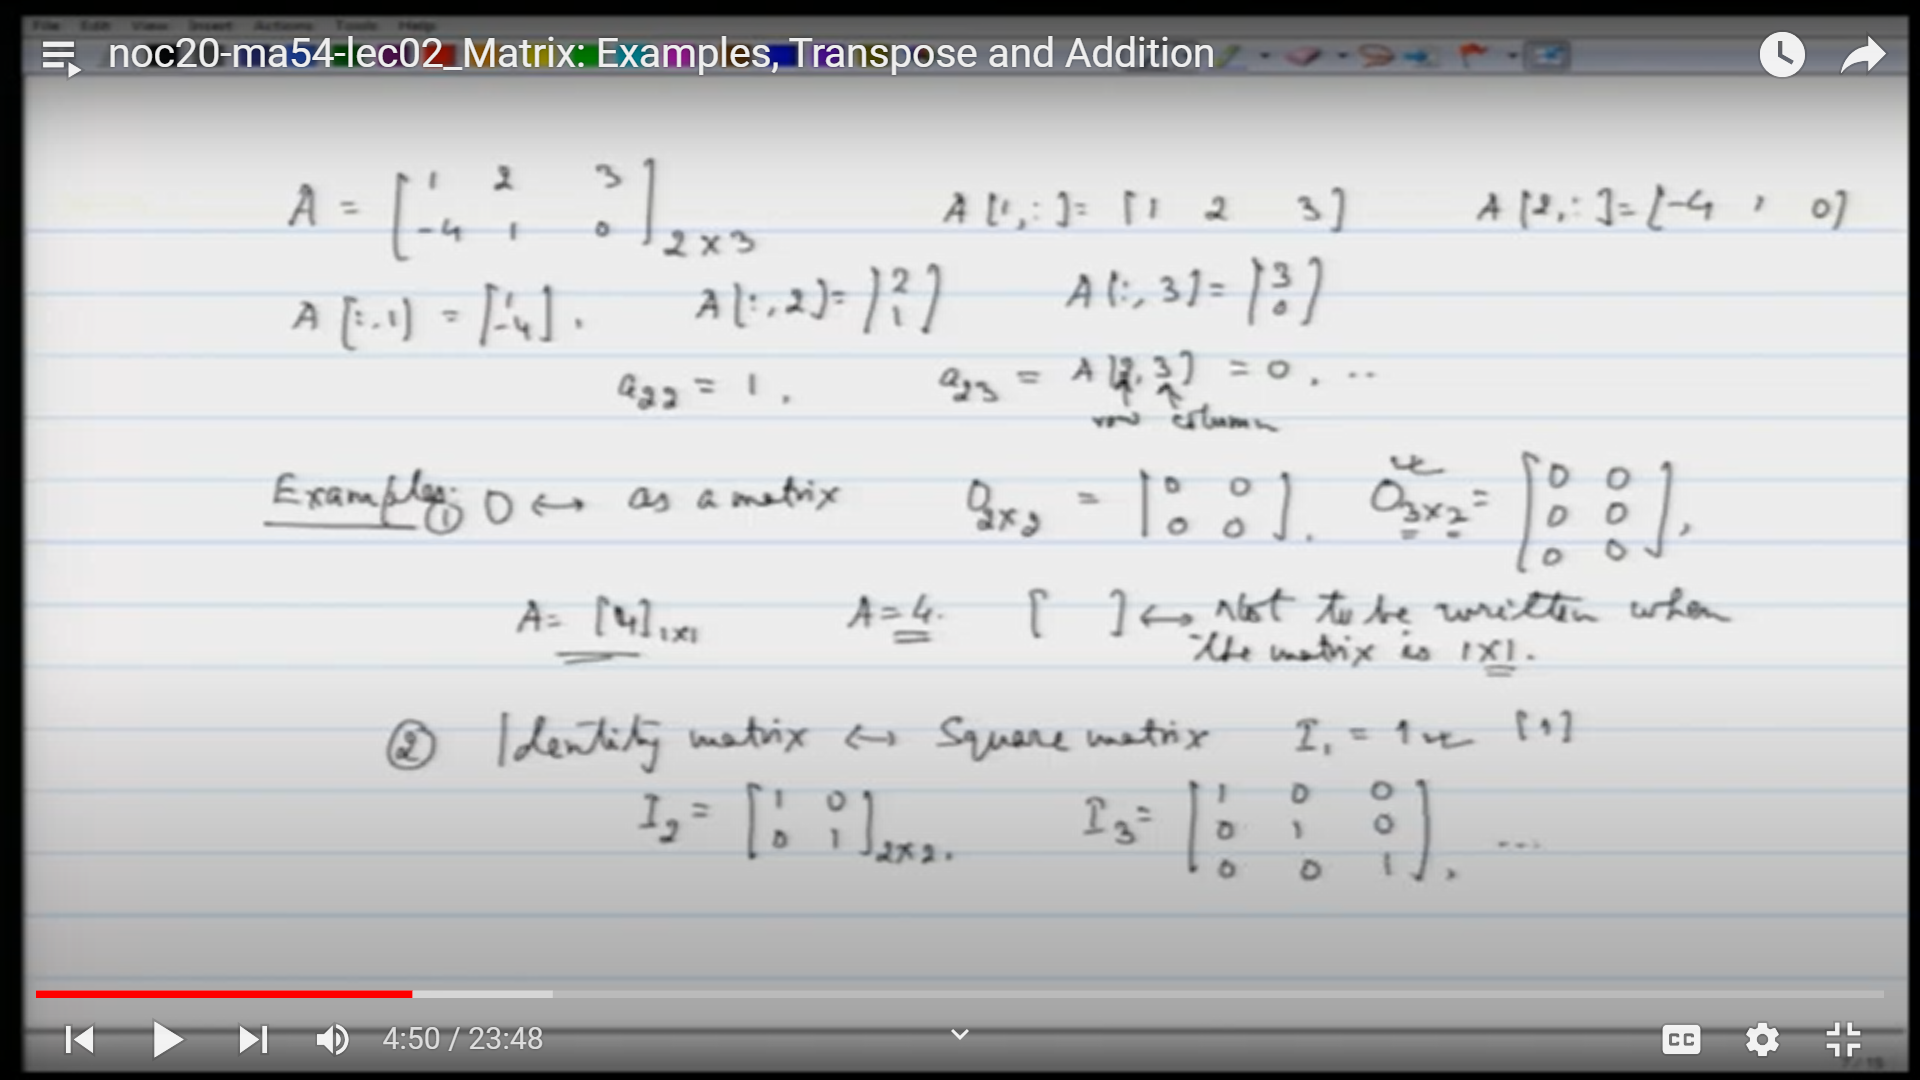 File Edit View Insert Actions Tools Help
noc20-ma54-lec02_Matrix: Examples, Transpose and Addition
A = [1 2 3
-4 1 0]2×3 A[1,:]= [1 2 3] A[2,:]=[-4 1 0]
A[:,1) = [1
-4]. A[:,2]= [2
1] A[:,3]= [3
0]
a22 = 1, a23 = A[2,3] = 0. ..
↑ ↑
row column
Examples: ① 0 ↔ as a matrix 02×2 = [0 0
0 0]. 03×2= [0 0
0 0
0 0],
A= [4]1×1 A=4. [ ] ↔ Not to be written when
the matrix is 1×1.
② Identity matrix ↔ Square matrix I1 = 1 [1]
I2 = [1 0
0 1]2×2. I3= [1 0 0
0 1 0
0 0 1], ...
4:50 / 23:48
CC